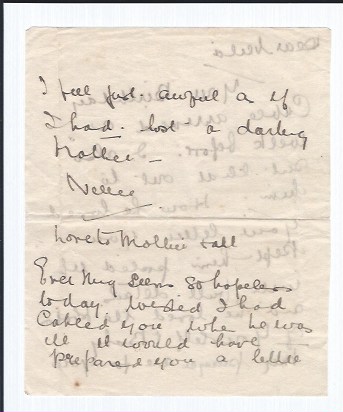 I feel just awful as if
I had lost a darling
brother -
Nellie
Love to Mother & all
Everything seems so hopeless
to day wished I had
Cabled you when he was
ill it would have
prepared you a little